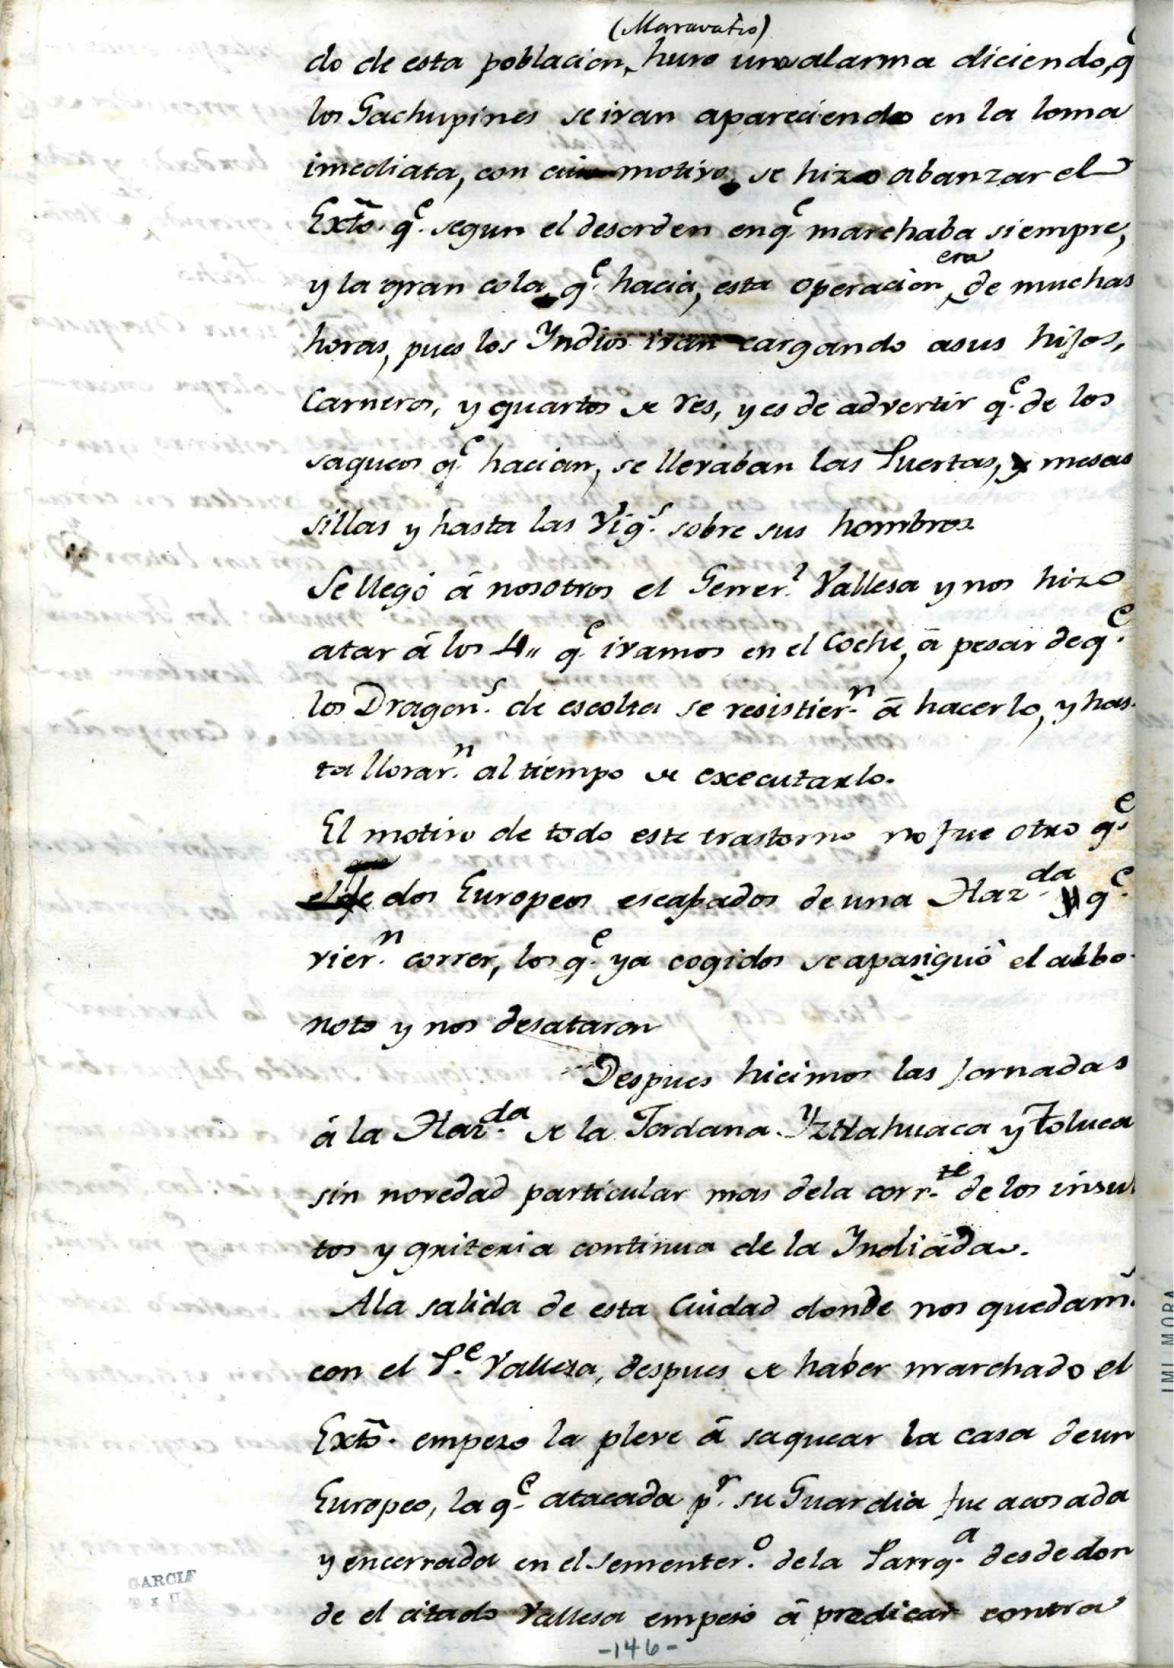 (Maravatio)
do de esta poblacion, huvo una alarma diciendo, q
los Gachupines se ivan apareciendo en la loma
imediata, con cuio motivo, se hizo abanzar el
Extõ. q.e segun el desorden en q.e marchaba siempre,
era
y la gran cola q.e hacia, esta operacion, de muchas
horas, pues los Yndios ivan cargando asus hijos,
Carneros, y quartos de Res, y es de advertir q.e de los
saqueos q.e hacian, se llevaban las Puertas, y mesas
sillas y hasta las Vig.s sobre sus hombros
Se llegó á nosotros el Gener.l Vallesa y nos hizo
atar á los 4,, q.e ivamos en el Coche, á pesar de q.e
los Dragon.s de escolta se resistier.n á hacerlo, y has-
ta llorar.n al tiempo de executarlo.
El motivo de todo este trastorno no fue otro q.e
el de dos Europeos escapados de una Haz.da y q.e
vier.n correr, los q.e ya cogidos se apasiguó el albo-
roto y nos desataron
Despues hicimos las Jornadas
á la Haz.da de la Jordana. Yztlahuaca y Toluca
sin novedad particular mas dela corr.te de los insul
tos y griteria continua de la Indiada.
Ala salida de esta Ciudad donde nos quedam.s
con el P.e Vallesa, despues de haber marchado el
Extõ. empezo la pleve á saquear la casa de un
Europeo, la q.e atacada p.r su Guardia fue acosada
y encerrada en el Sementer.o de la Parrq.a desde don
de el citado Vallesa empesó á predicar contra
-146-
GARCIA